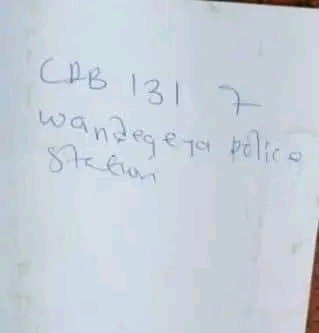 CDB 131 7
wandegeya police
station